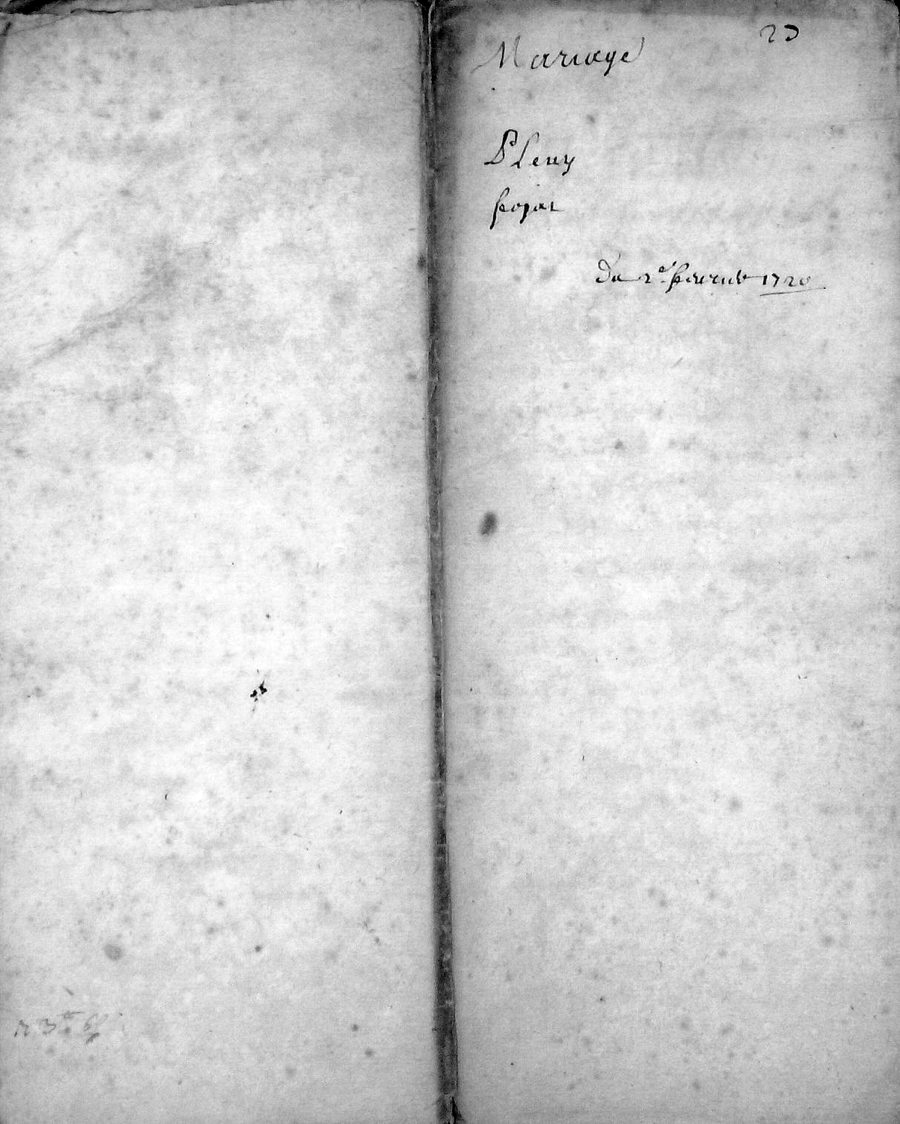 23
Mariage
Pleuy
fojat
Du 2e feburier 1720